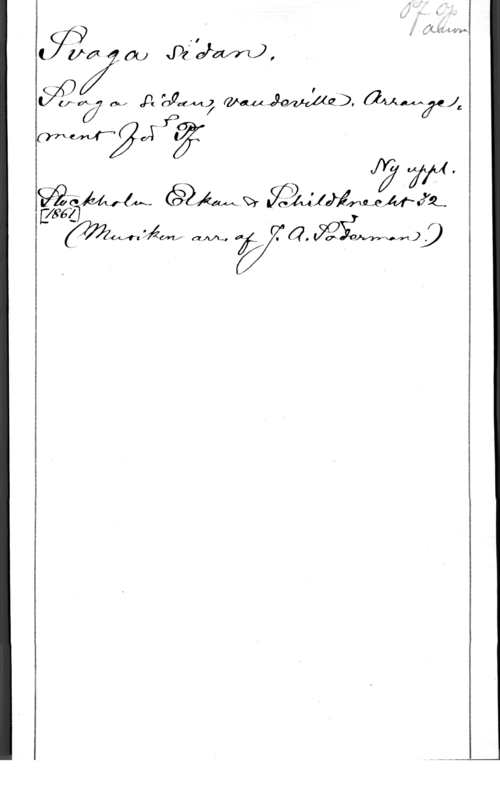 Pf Op
Svaga sidan.
Svaga sidan, vaudeville. Arrange-
ment för Pf.
Ny uppl.
Stockholm Elkan & Schildknecht 52
[1861]
(Musiken arr. af J. A. Söderman.)